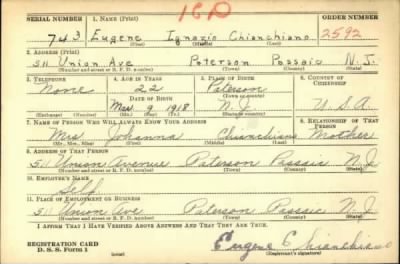 1 C D
SERIAL NUMBER 1. NAME (Print) ORDER NUMBER
743 Eugene Ignazio Chianchiano 2592
(First) (Middle) (Last)
2. ADDRESS (Print)
511 Union Ave Paterson Passaic N.J.
(Number and street or R. F. D. number) (Town) (County) (State)
3. TELEPHONE 4. AGE IN YEARS 5. PLACE OF BIRTH 6. COUNTRY OF CITIZENSHIP
None 22 Paterson
(Town or county)
DATE OF BIRTH
Mar 9 1918 N.J. U.S.A.
(Exchange) (Number) (Mo.) (Day) (Yr.) (State or country)
7. NAME OF PERSON WHO WILL ALWAYS KNOW YOUR ADDRESS 8. RELATIONSHIP OF THAT PERSON
Mrs Johanna Chianchiano Mother
(Mr., Mrs., Miss) (First) (Middle) (Last)
9. ADDRESS OF THAT PERSON
511 Union Avenue Paterson Passaic N.J.
(Number and street or R. F. D. number) (Town) (County) (State)
10. EMPLOYER'S NAME
Self
11. PLACE OF EMPLOYMENT OR BUSINESS
511 Union Ave Paterson Passaic N.J.
(Number and street or R. F. D. number) (Town) (County) (State)
I AFFIRM THAT I HAVE VERIFIED ABOVE ANSWERS AND THAT THEY ARE TRUE.
REGISTRATION CARD
D. S. S. Form 1 Eugene Chianchiano
(over) (Registrant's signature)